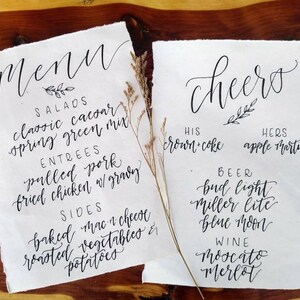 menu
SALADS
classic caesar
spring green mix
ENTREES
pulled pork
fried chicken w/ gravy
SIDES
baked mac n cheese
roasted vegetables &
potatoes
cheers
HIS
crown + coke
HERS
apple martini
BEER
bud light
miller lite
blue moon
WINE
moscato
merlot